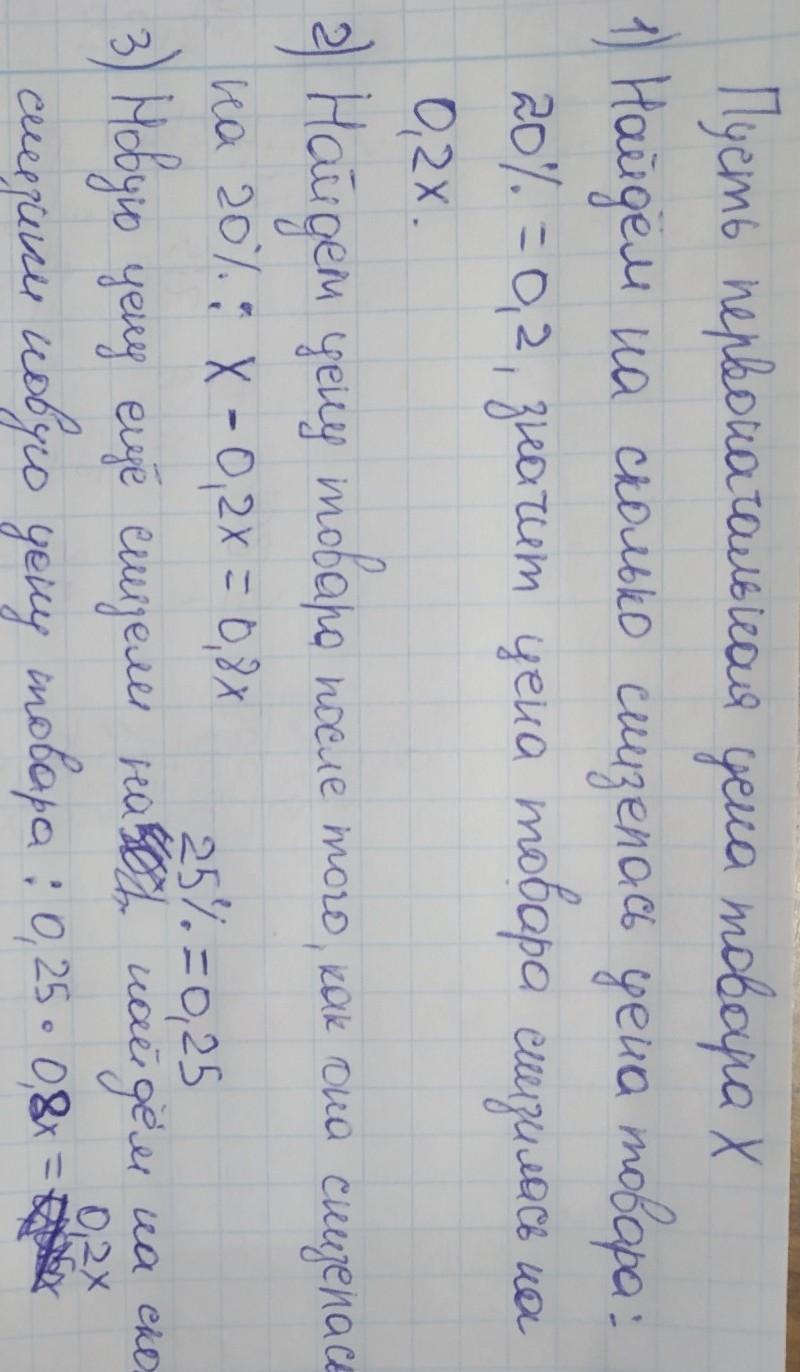 Пусть первоначальная цена товара X
1) Найдём на сколько снизепась цена товара:
20% = 0,2, значит цена товара снизилась на
0,2x.
2) Найдем цену товара после того, как она снизепась
на 20%: X - 0,2x = 0,8x
25% = 0,25
3) Новую цену ещё снизели на найдём на ско
снизили новую цену товара: 0,25 • 0,8x =
0,2x